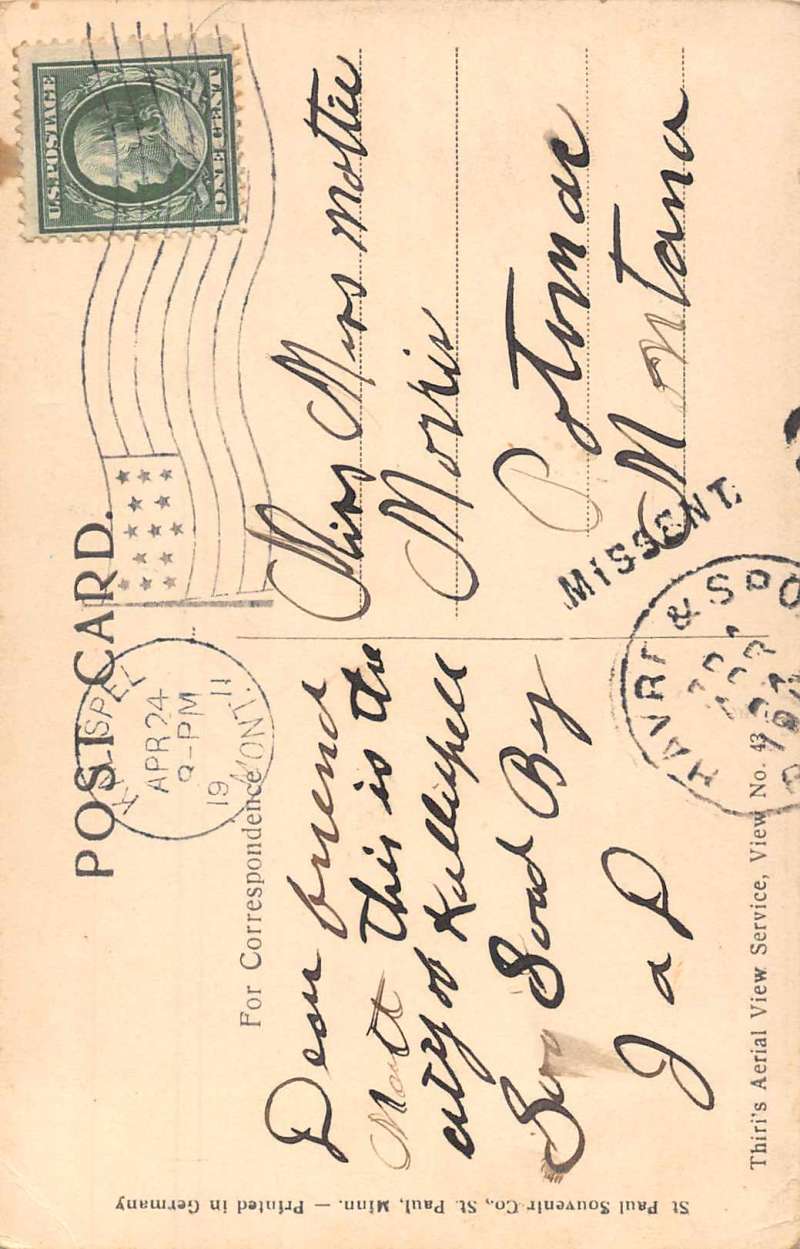 POST CARD.
For Correspondence
U.S. POSTAGE
ONE CENT
KALISPELL
APR 24
8-PM
19 11
MONT.
Dear friend
Matt This is the
city of Kallispell
So Good By
J a D
Miss Mrs Mottie
Morris
Potomac
Montana
MISSENT.
HAVRE & SPO
APR
Thiri's Aerial View Service, View No. 43
St Paul Souvenir Co., St. Paul, Minn. — Printed in Germany